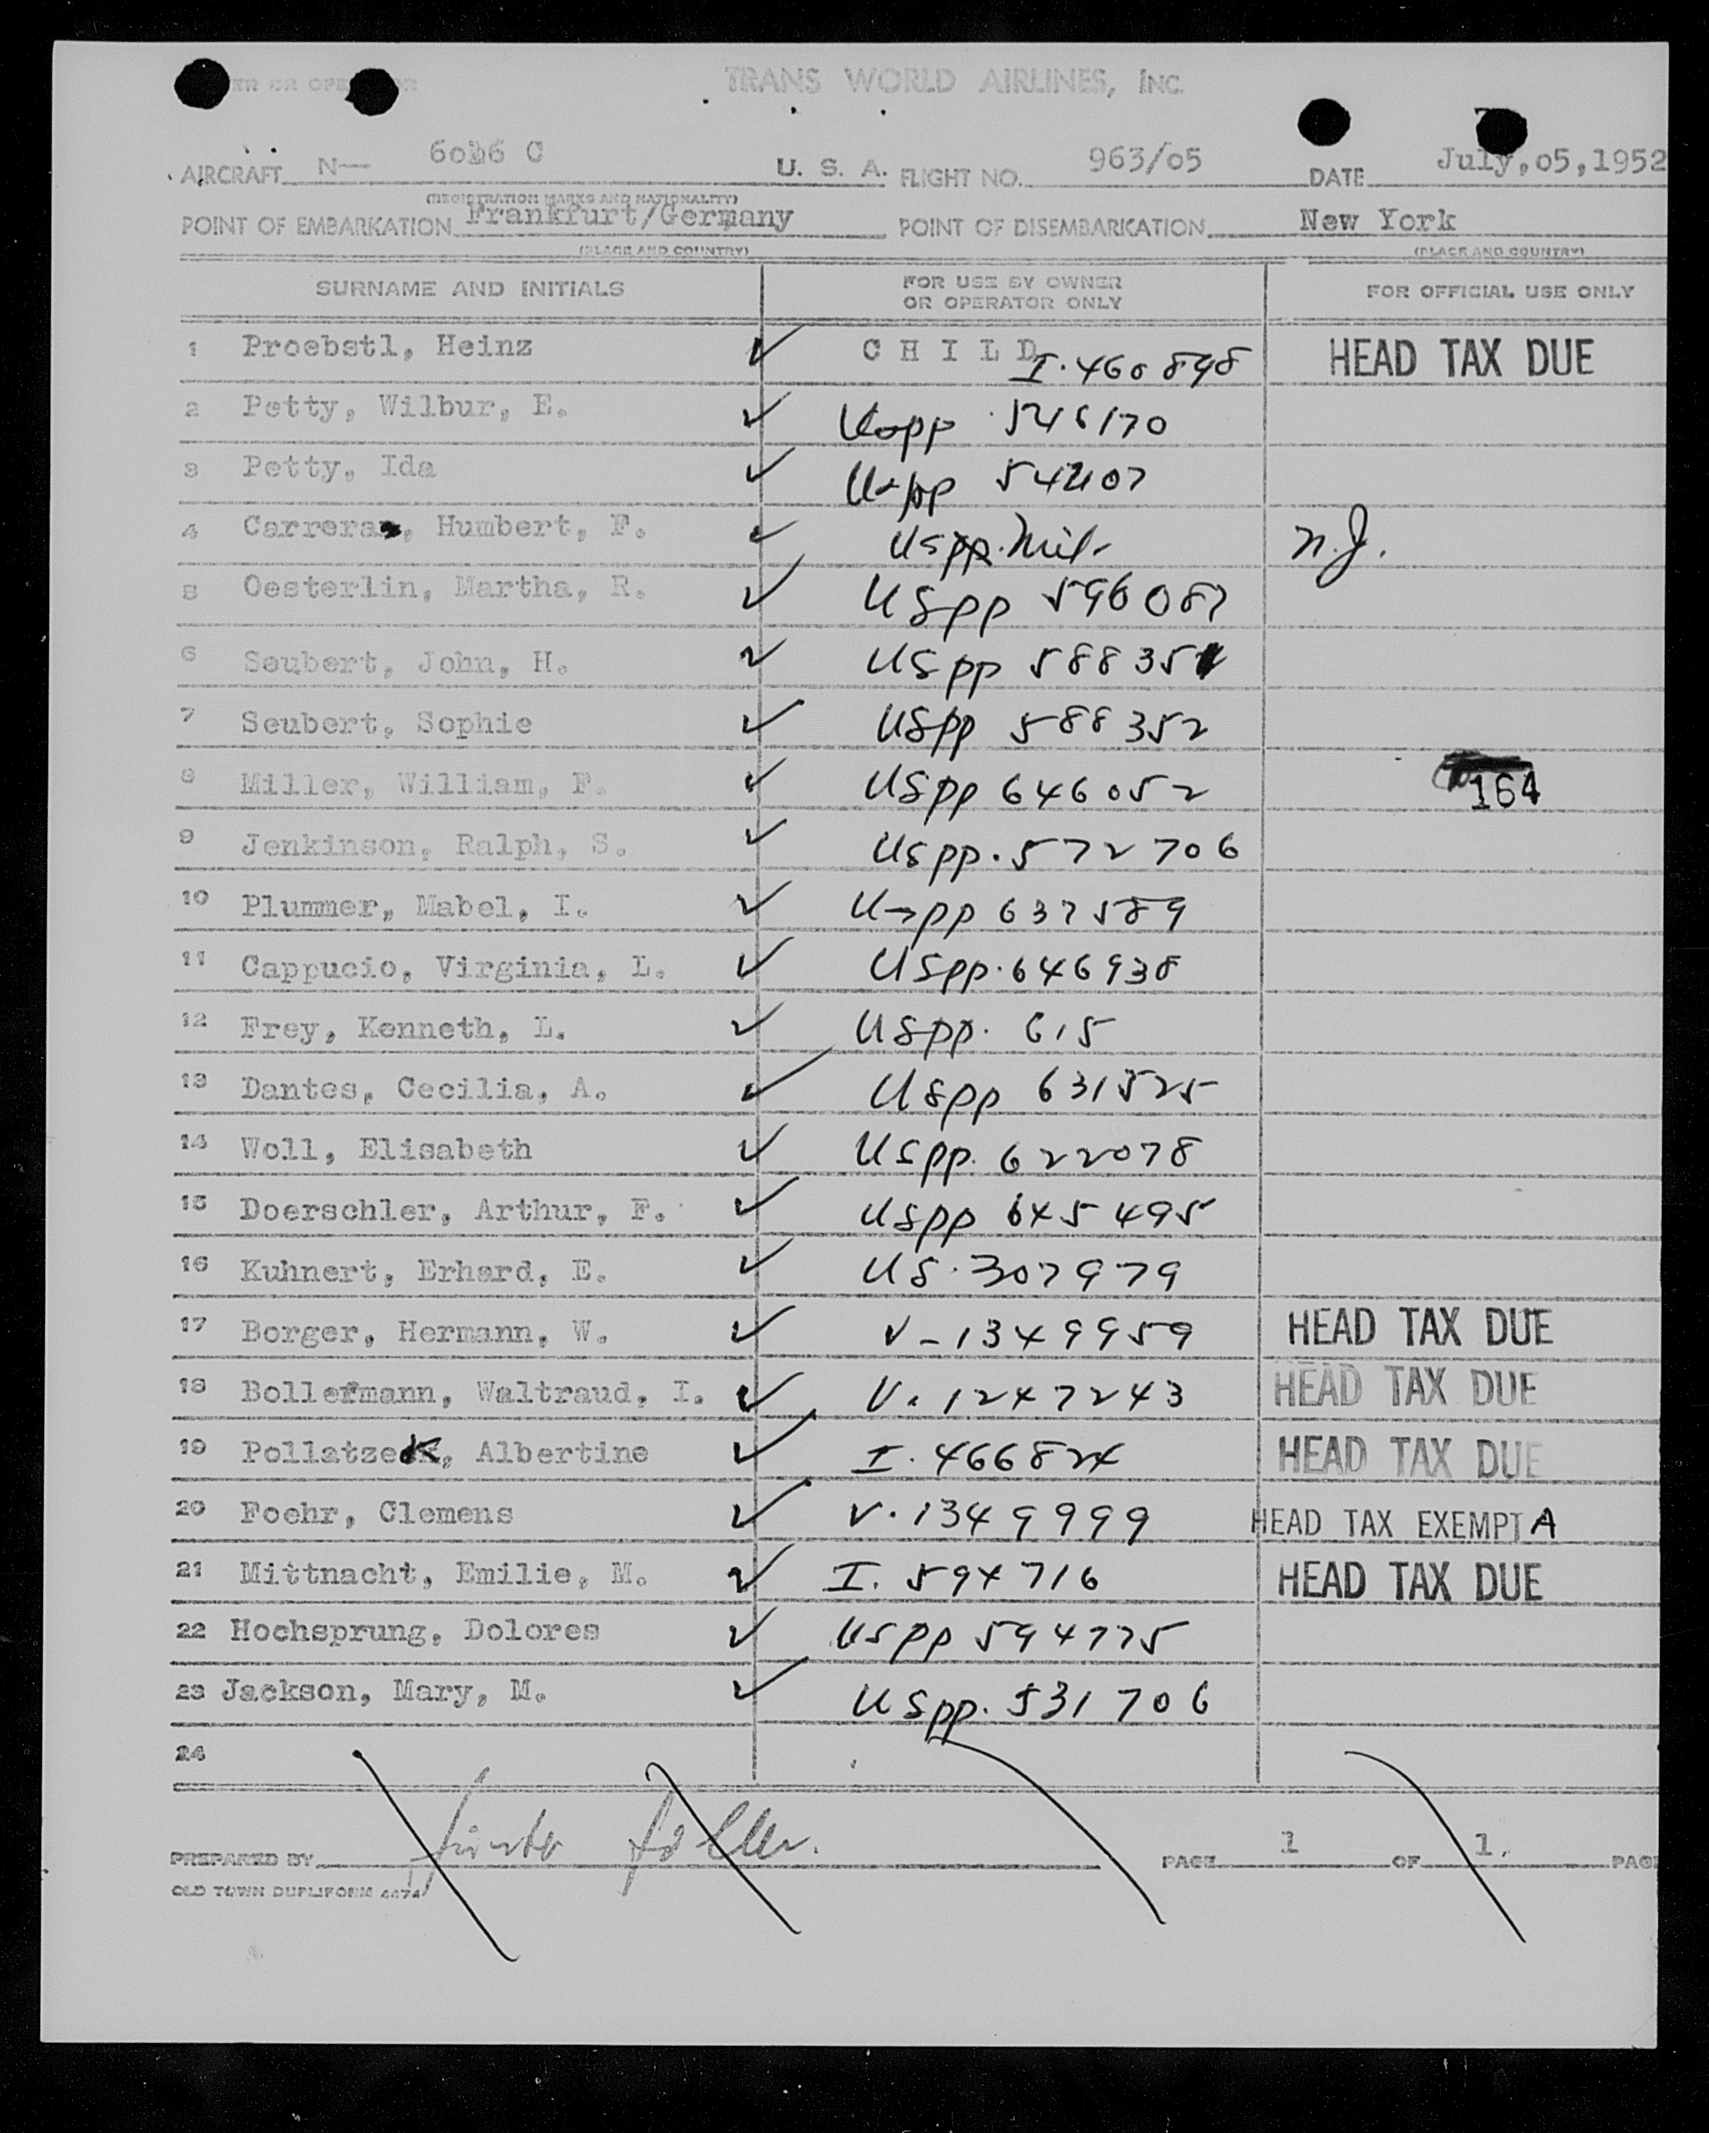 OWNER OR OPERATOR TRANS WORLD AIRLINES, INC.
AIRCRAFT N— 6026 C U. S. A. FLIGHT NO. 963/05 DATE July,05,1952
(REGISTRATION MARKS AND NATIONALITY)
POINT OF EMBARKATION Frankfurt/Germany POINT OF DISEMBARKATION New York
(PLACE AND COUNTRY) (PLACE AND COUNTRY)
SURNAME AND INITIALS FOR USE BY OWNER OR OPERATOR ONLY FOR OFFICIAL USE ONLY
1 Proebstl, Heinz ✓ C H I L D I. 460898 HEAD TAX DUE
2 Petty, Wilbur, E. ✓ USpp 546170
3 Petty, Ida ✓ USpp
4 Carrera, Humbert, F. ✓ USpp. Mil. N.J.
5 Oesterlin, Martha, R. ✓ USpp 596087
6 Seubert, John, H. ✓ USpp 588351
7 Seubert, Sophie ✓ USpp 588352
8 Miller, William, F. ✓ USpp 646052 164
9 Jenkinson, Ralph, S. ✓ USpp. 572706
10 Plummer, Mabel, I. ✓ USpp 637589
11 Cappucio, Virginia, L. ✓ USpp. 646938
12 Frey, Kenneth, L. ✓ USpp. 615
13 Dantes, Cecilia, A. ✓ USpp 631525
14 Woll, Elisabeth ✓ USpp. 622078
15 Doerschler, Arthur, F. ✓ USpp 645495
16 Kuhnert, Erhard, E. ✓ US. 307979
17 Borger, Hermann, W. ✓ V-1349959 HEAD TAX DUE
18 Bollermann, Waltraud, I. ✓ V. 1247243 HEAD TAX DUE
19 Pollatzek, Albertine ✓ I. 466824 HEAD TAX DUE
20 Foehr, Clemens ✓ V. 1349999 HEAD TAX EXEMPT A
21 Mittnacht, Emilie, M. ✓ I. 594716 HEAD TAX DUE
22 Hochsprung, Dolores ✓ USpp 594775
23 Jackson, Mary, M. ✓ USpp. 531706
24
PREPARED BY PAGE 1 OF 1. PAGE
OLD TOWN DUPLIFORM